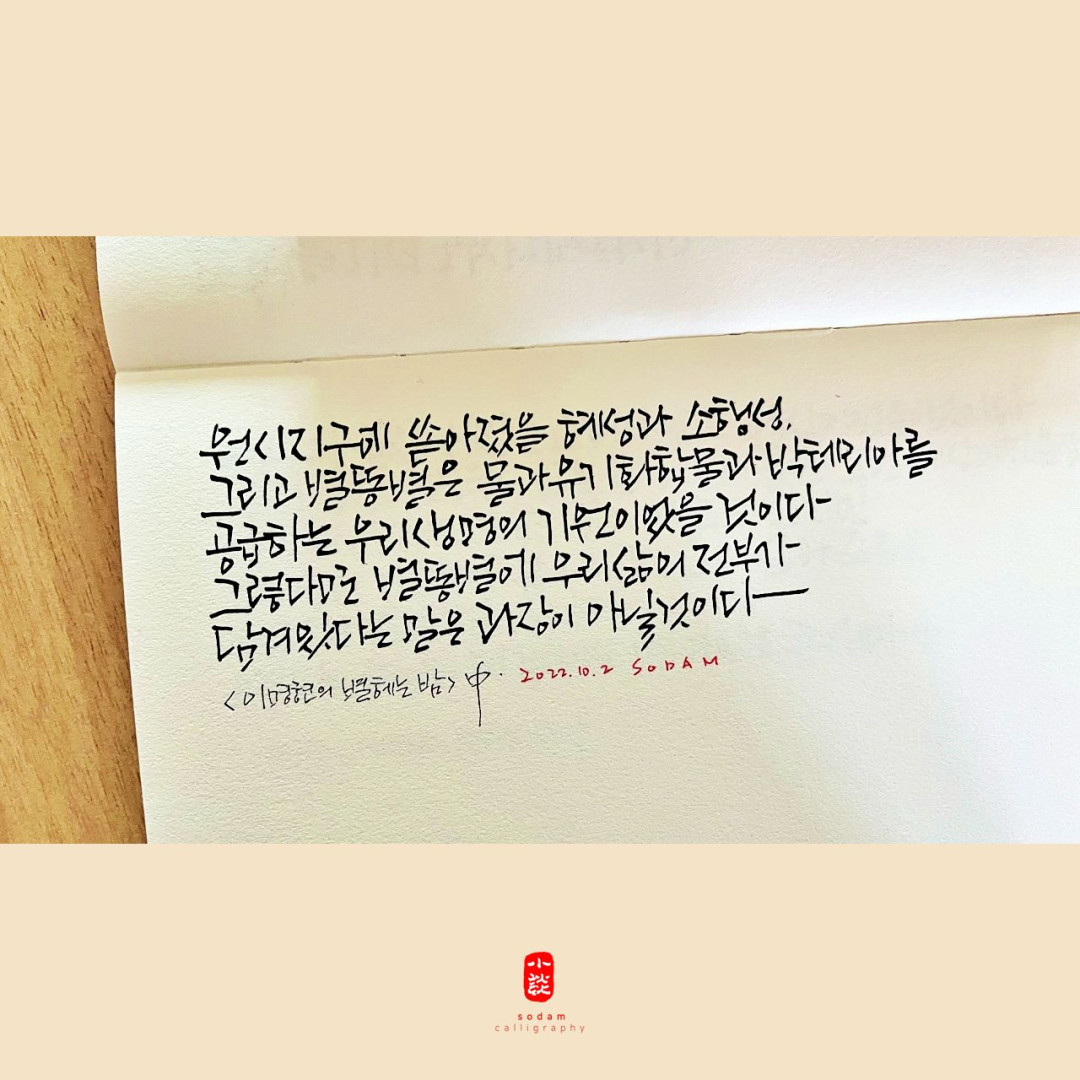 원시지구에 쏟아졌을 혜성과 소행성,
그리고 별똥별은 물과유기화합물과 박테리아를
공급하는 우리생명의 기원이었을 것이다
그렇다면 별똥별에 우리삶의 전부가
담겨있다는 말은 과장이 아닐것이다
<이명현의 별헤는 밤> 中. 2022.10.2 SODAM
小談
sodam
calligraphy